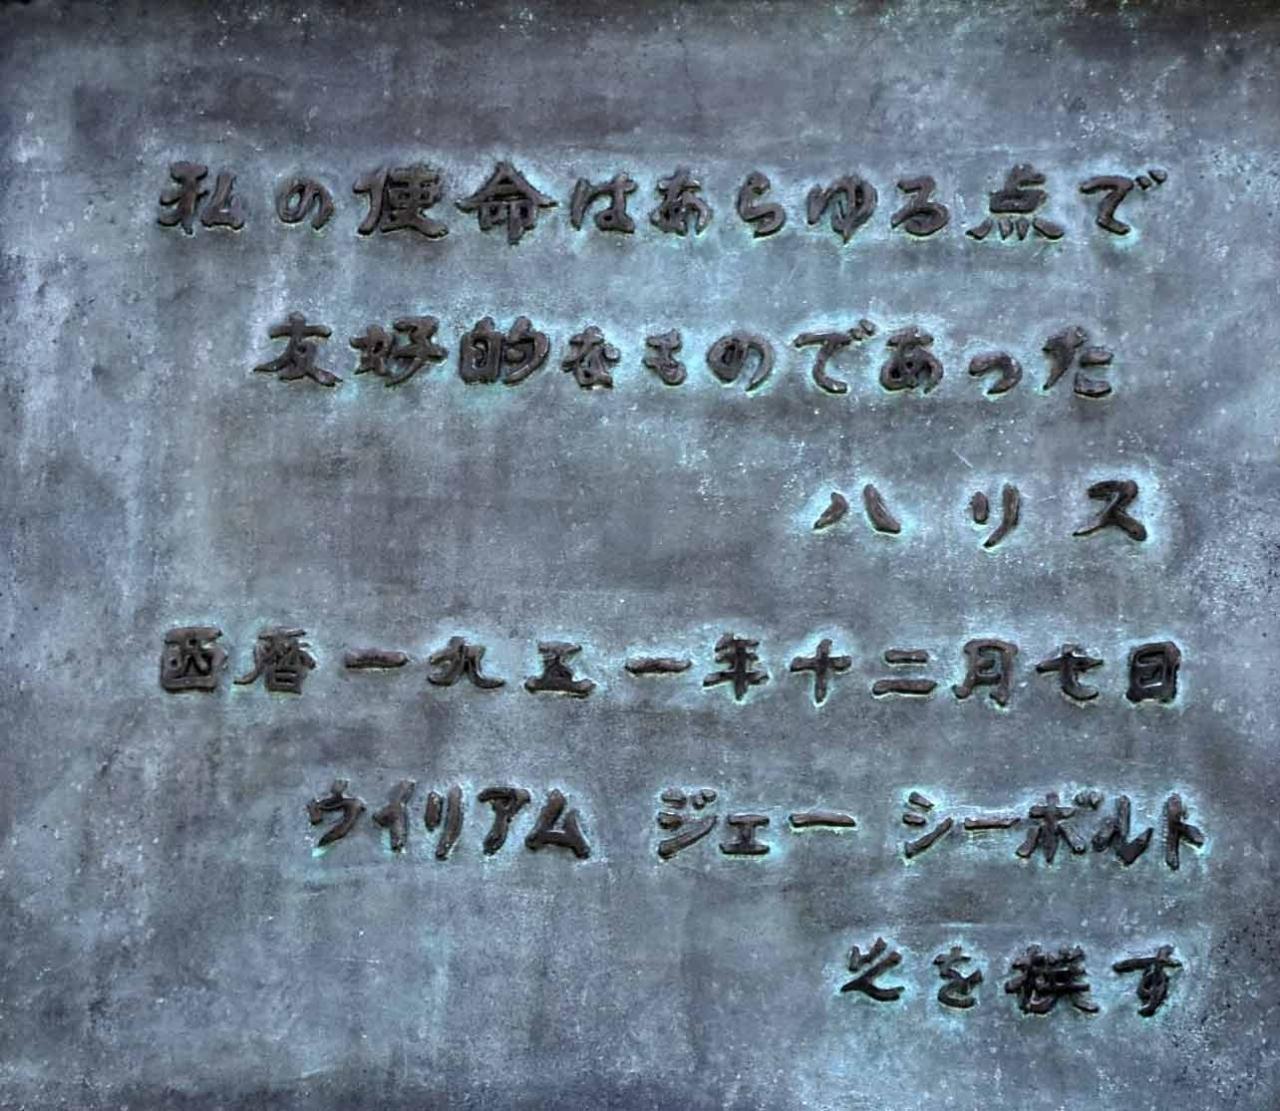 私の使命はあらゆる点で
友好的なものであった
ハリス
西暦一九五一年十二月七日
ウイリアム ジェー シーボルト
之を撰す